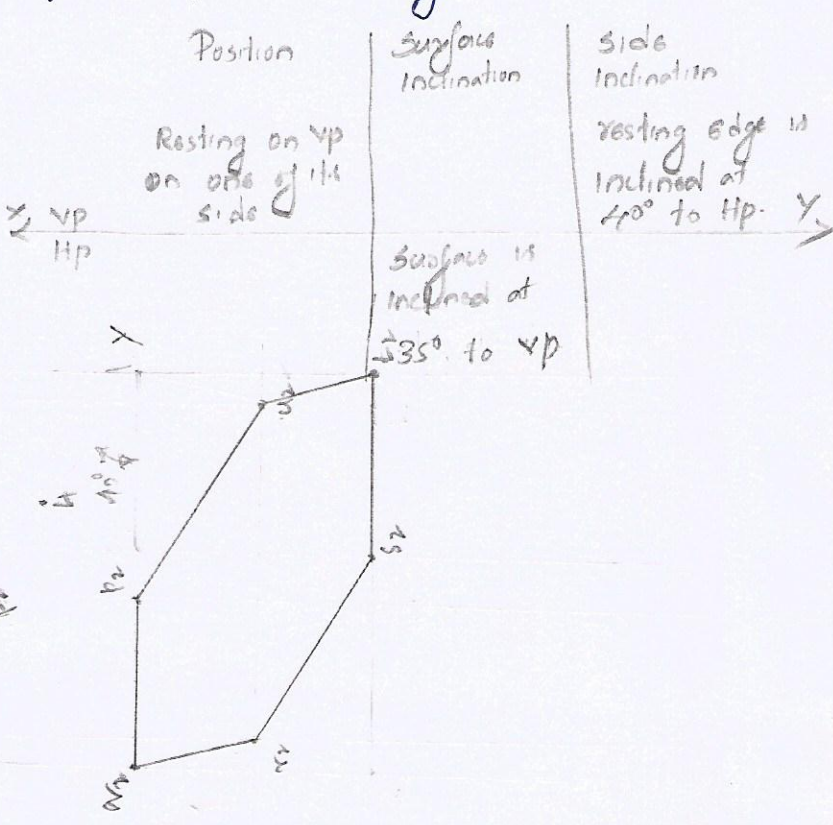 Position
Resting on VP
on one of its
side
Surface
Inclination
Surface is
inclined at
35° to VP
Side
Inclination
resting edge is
Inclined at
40° to Hp.
X VP Y
Hp
Y
40°
P2
S2